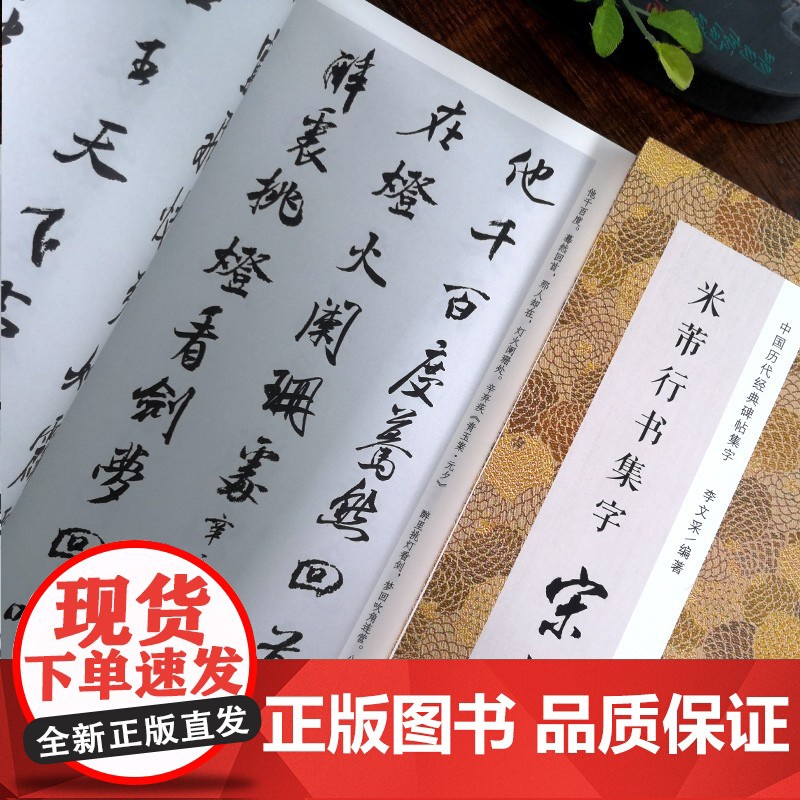 他千百度蓦然回首
在燈火闌珊處 辛
醉裏挑燈看劍夢回
五天
飞
他千百度。蓦然回首，那人却在，灯火阑珊处。辛弃疾《青玉案·元夕》
醉里挑灯看剑，梦回吹角连营。八
中国历代经典碑帖集字
李文采/编著
米芾行书集字
宋
现货当天发
全新正版直发
正版图书 品质保证